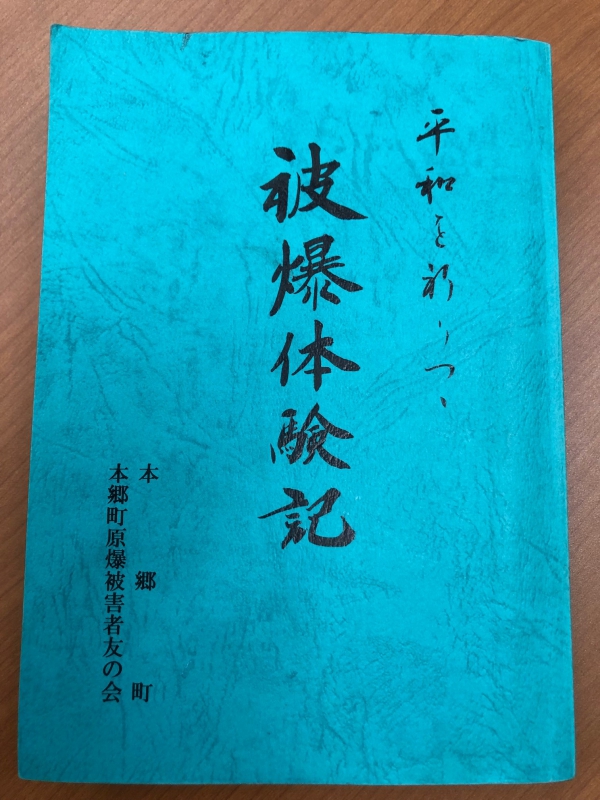 平和を祈りつゝ
被爆体験記
本郷町
本郷町原爆被害者友の会